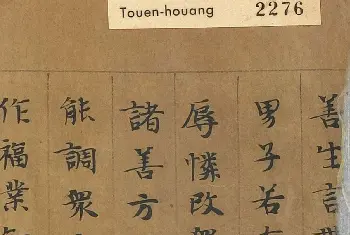 Touen-houang 2276
善生言
男子若
辱憐改
諸善方
能調衆
作福業